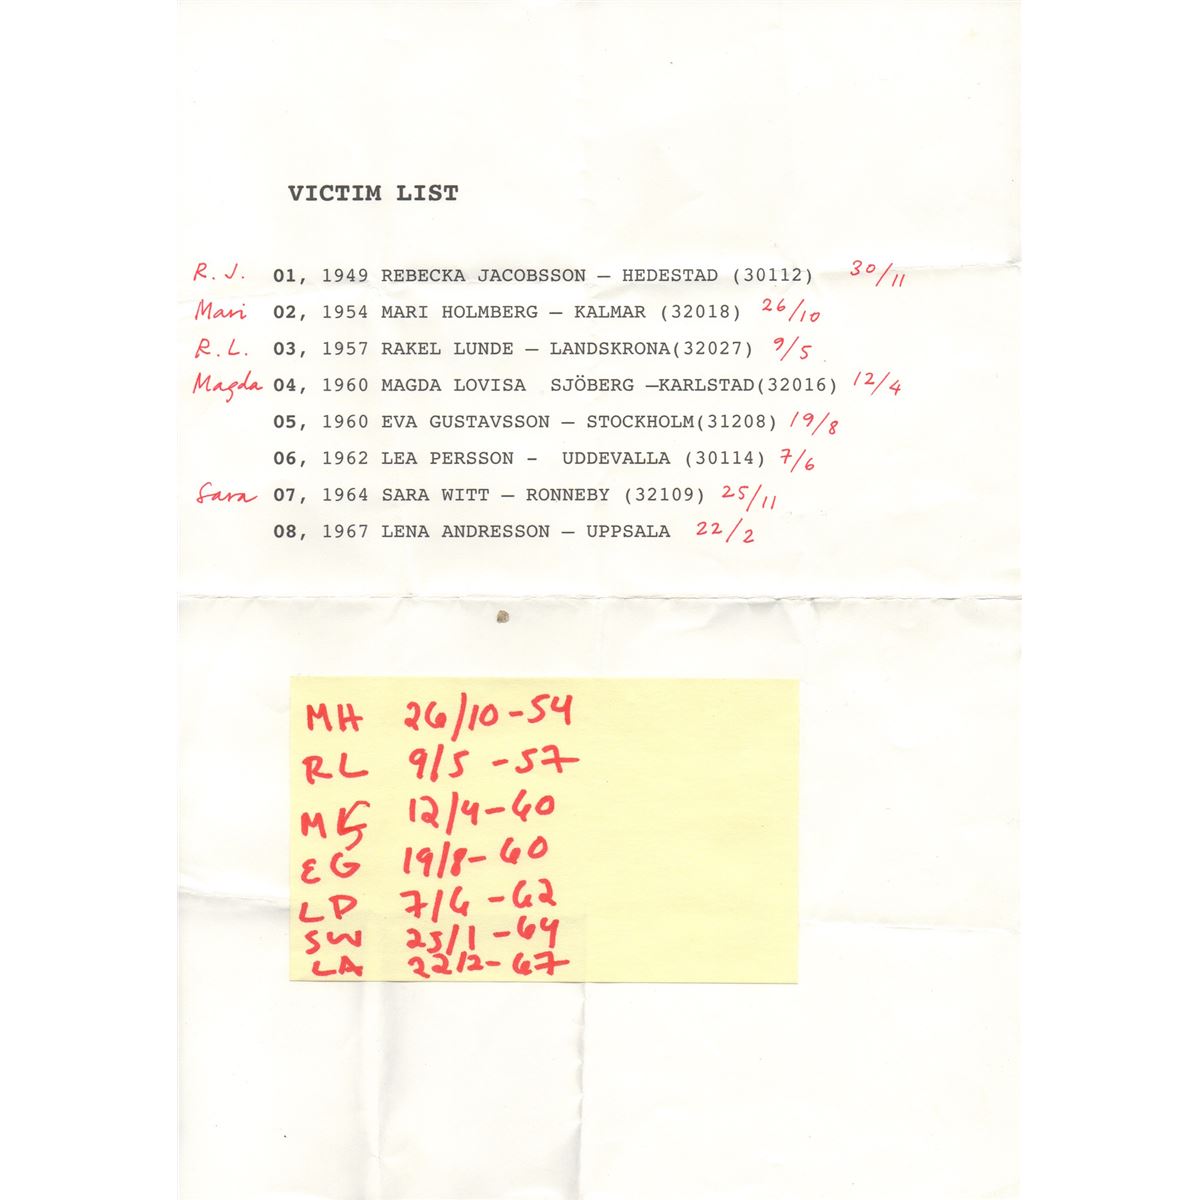 VICTIM LIST
R. J. 01, 1949 REBECKA JACOBSSON – HEDESTAD (30112) 30/11
Mari 02, 1954 MARI HOLMBERG – KALMAR (32018) 26/10
R. L. 03, 1957 RAKEL LUNDE – LANDSKRONA(32027) 9/5
Magda 04, 1960 MAGDA LOVISA SJÖBERG –KARLSTAD(32016) 12/4
05, 1960 EVA GUSTAVSSON – STOCKHOLM(31208) 19/8
06, 1962 LEA PERSSON - UDDEVALLA (30114) 7/6
Sara 07, 1964 SARA WITT – RONNEBY (32109) 25/11
08, 1967 LENA ANDRESSON – UPPSALA 22/2
MH 26/10-54
RL 9/5 -57
M 12/4-60
EG 19/8-60
LP 7/6 -62
SW 25/1 -64
LA 22/2-67